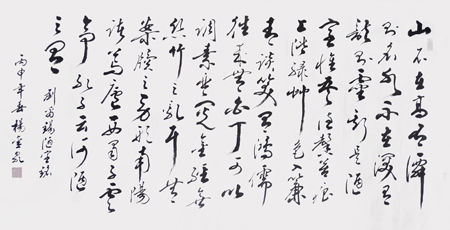 山不在高有僊
則名水不在深有
龍則靈斯是陋
室惟吾德馨苔痕
上階綠草色入簾
青談笑有鴻儒
往來無白丁可以
調素琴閱金經無
絲竹之亂耳無
案牘之勞形南陽
諸葛廬西蜀子雲
亭孔子云何陋
之有
劉禹錫陋室銘
丙申年春楊雲